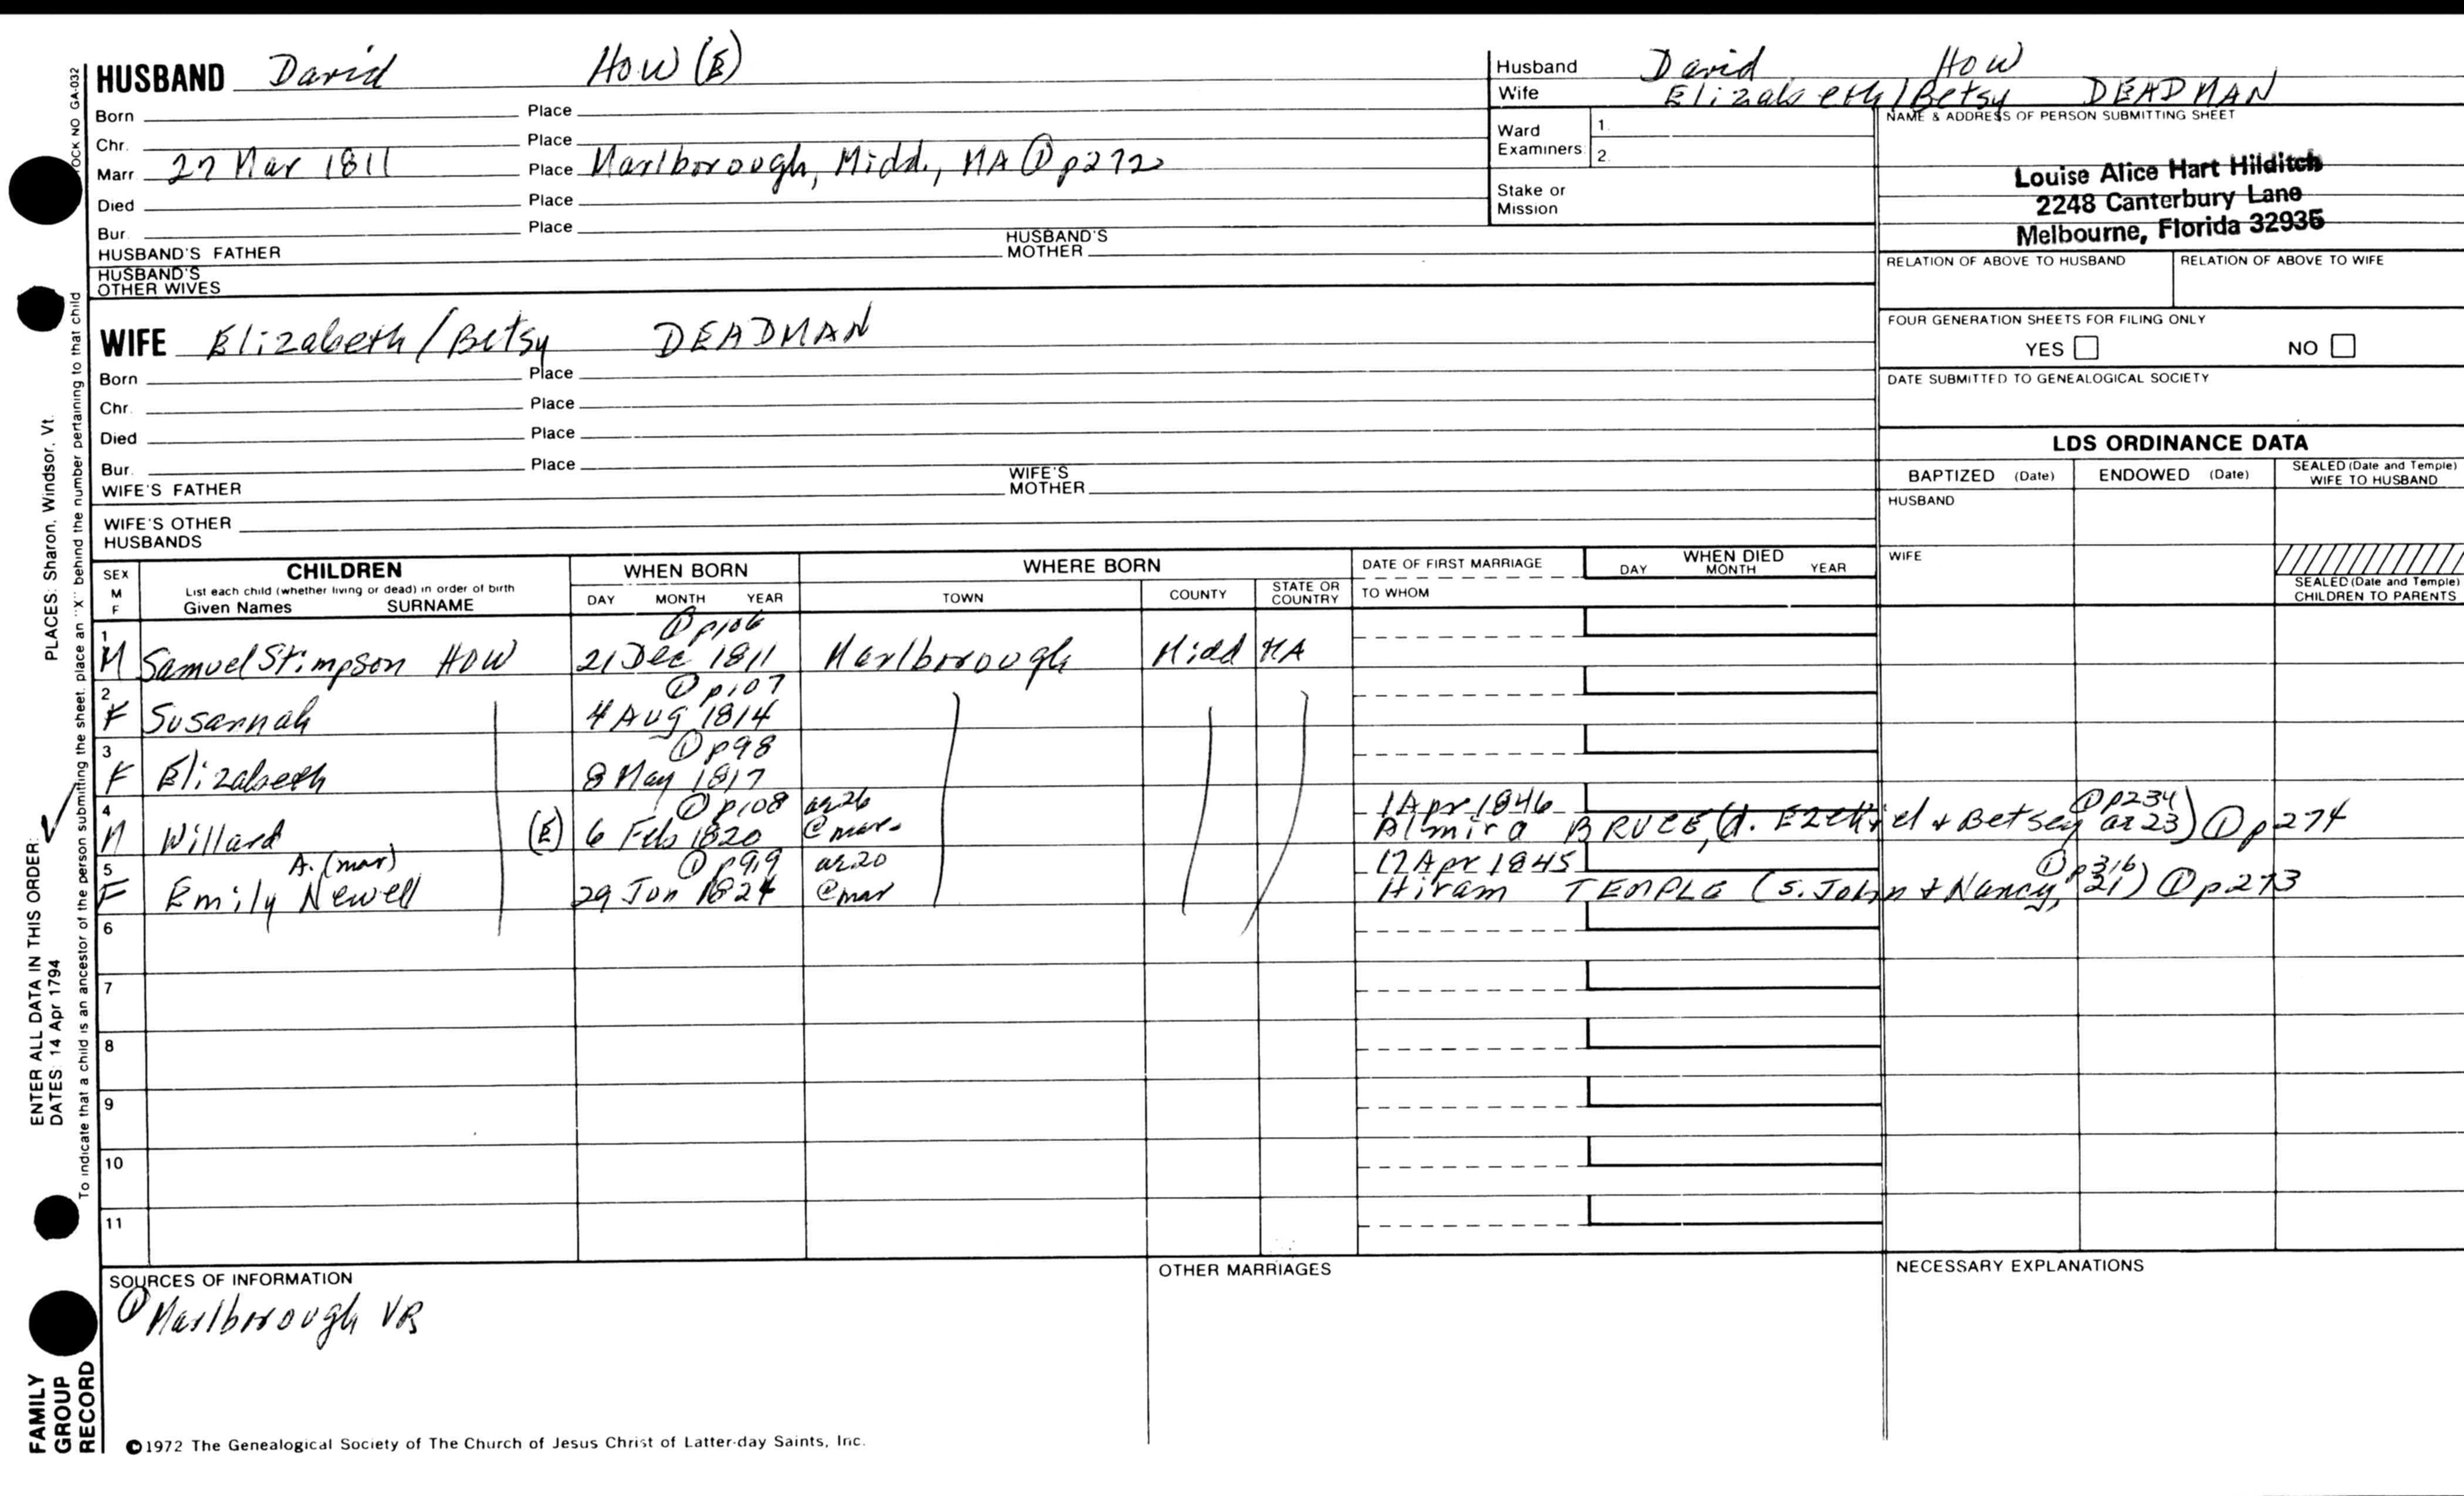 HUSBAND David How (E)
Born Place
Chr. Place
Marr 27 Mar 1811 Place Marlborough, Midd., MA ① p272
Died Place
Bur. Place
HUSBAND'S FATHER HUSBAND'S MOTHER
HUSBAND'S OTHER WIVES
Husband David How
Wife Elizabeth/Betsy DEADMAN
Ward Examiners 1. 2.
Stake or Mission
NAME & ADDRESS OF PERSON SUBMITTING SHEET
Louise Alice Hart Hilditch
2248 Canterbury Lane
Melbourne, Florida 32935
RELATION OF ABOVE TO HUSBAND RELATION OF ABOVE TO WIFE
FOUR GENERATION SHEETS FOR FILING ONLY
YES NO
DATE SUBMITTED TO GENEALOGICAL SOCIETY
WIFE Elizabeth/Betsy DEADMAN
Born Place
Chr. Place
Died Place
Bur. Place
WIFE'S FATHER WIFE'S MOTHER
WIFE'S OTHER HUSBANDS
LDS ORDINANCE DATA
BAPTIZED (Date) ENDOWED (Date) SEALED (Date and Temple) WIFE TO HUSBAND
HUSBAND
WIFE
SEALED (Date and Temple) CHILDREN TO PARENTS
SEX M F
CHILDREN
List each child (whether living or dead) in order of birth
Given Names SURNAME
WHEN BORN
DAY MONTH YEAR
WHERE BORN
TOWN COUNTY STATE OR COUNTRY
DATE OF FIRST MARRIAGE
TO WHOM
WHEN DIED
DAY MONTH YEAR
① p106
1 M Samuel Stimpson HOW 21 Dec 1811 Marlborough Midd MA
① p107
2 F Susannah 4 Aug 1814
① p98
3 F Elizabeth 8 May 1817
① p108 ae 26 1 Apr 1846 ① p234
4 M Willard (E) 6 Feb 1820 @ mar. Almira BRUCE, (d. Ezekiel + Betsey ae 23) ① p274
A. (mar) ① p99 ae 20 17 Apr 1845 ① p316
5 F Emily Newell 29 Jun 1824 @ mar Hiram TEMPLE (s. John + Nancy, 21) ① p273
6
7
8
9
10
11
SOURCES OF INFORMATION
① Marlborough VR
OTHER MARRIAGES
NECESSARY EXPLANATIONS
©1972 The Genealogical Society of The Church of Jesus Christ of Latter-day Saints, Inc.
FAMILY GROUP RECORD
ENTER ALL DATA IN THIS ORDER:
DATES: 14 Apr 1794
PLACES: Sharon, Windsor, Vt.
To indicate that a child is an ancestor of the person submitting the sheet, place an "X" behind the number pertaining to that child
OCK NO GA-032